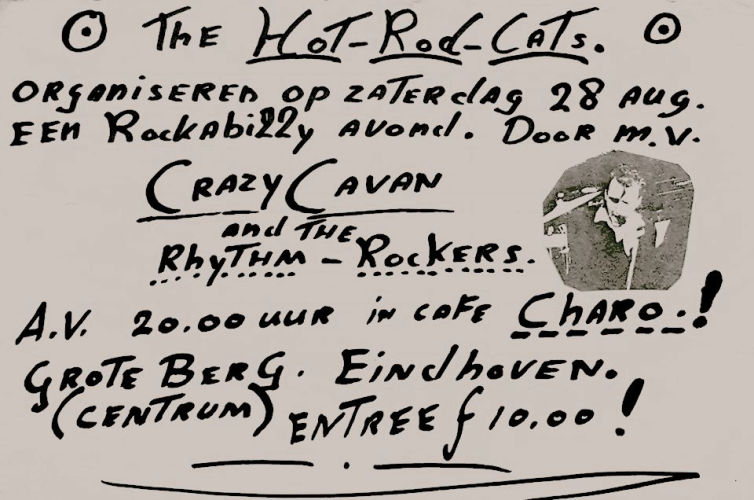 The Hot-Rod-Cats.
ORGANISEREN OP ZATERDAG 28 AUG.
EEN Rockabilly AVOND. DOOR M.V.
CRAZY CAVAN
and THE
RhyTHM - RocKERS.
A.V. 20.00 uur in cafe Charo.!
GROTE BERG. EindhovEN.
(CENTRUM) ENTREE f 10.00!